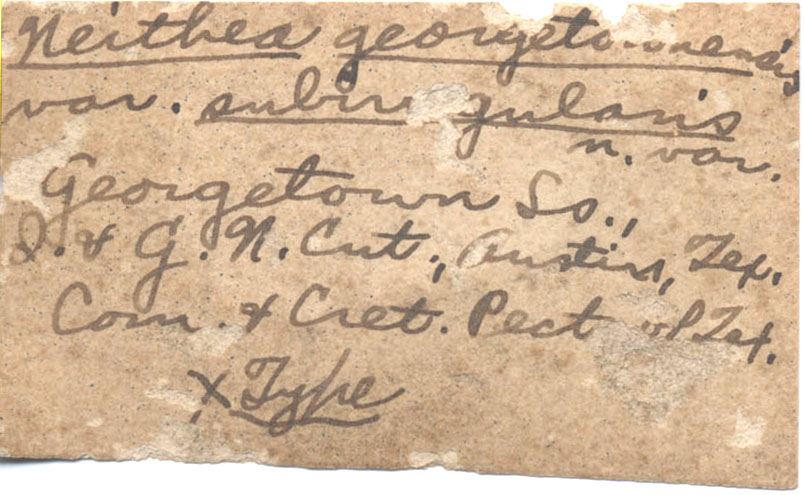 Neithea georgetownensis
var. subirregularis
n. var.
Georgetown Ls.,
I. & G. N. Cut., Austin, Tex.
Com. & Cret. Pect of Tex.
x Type